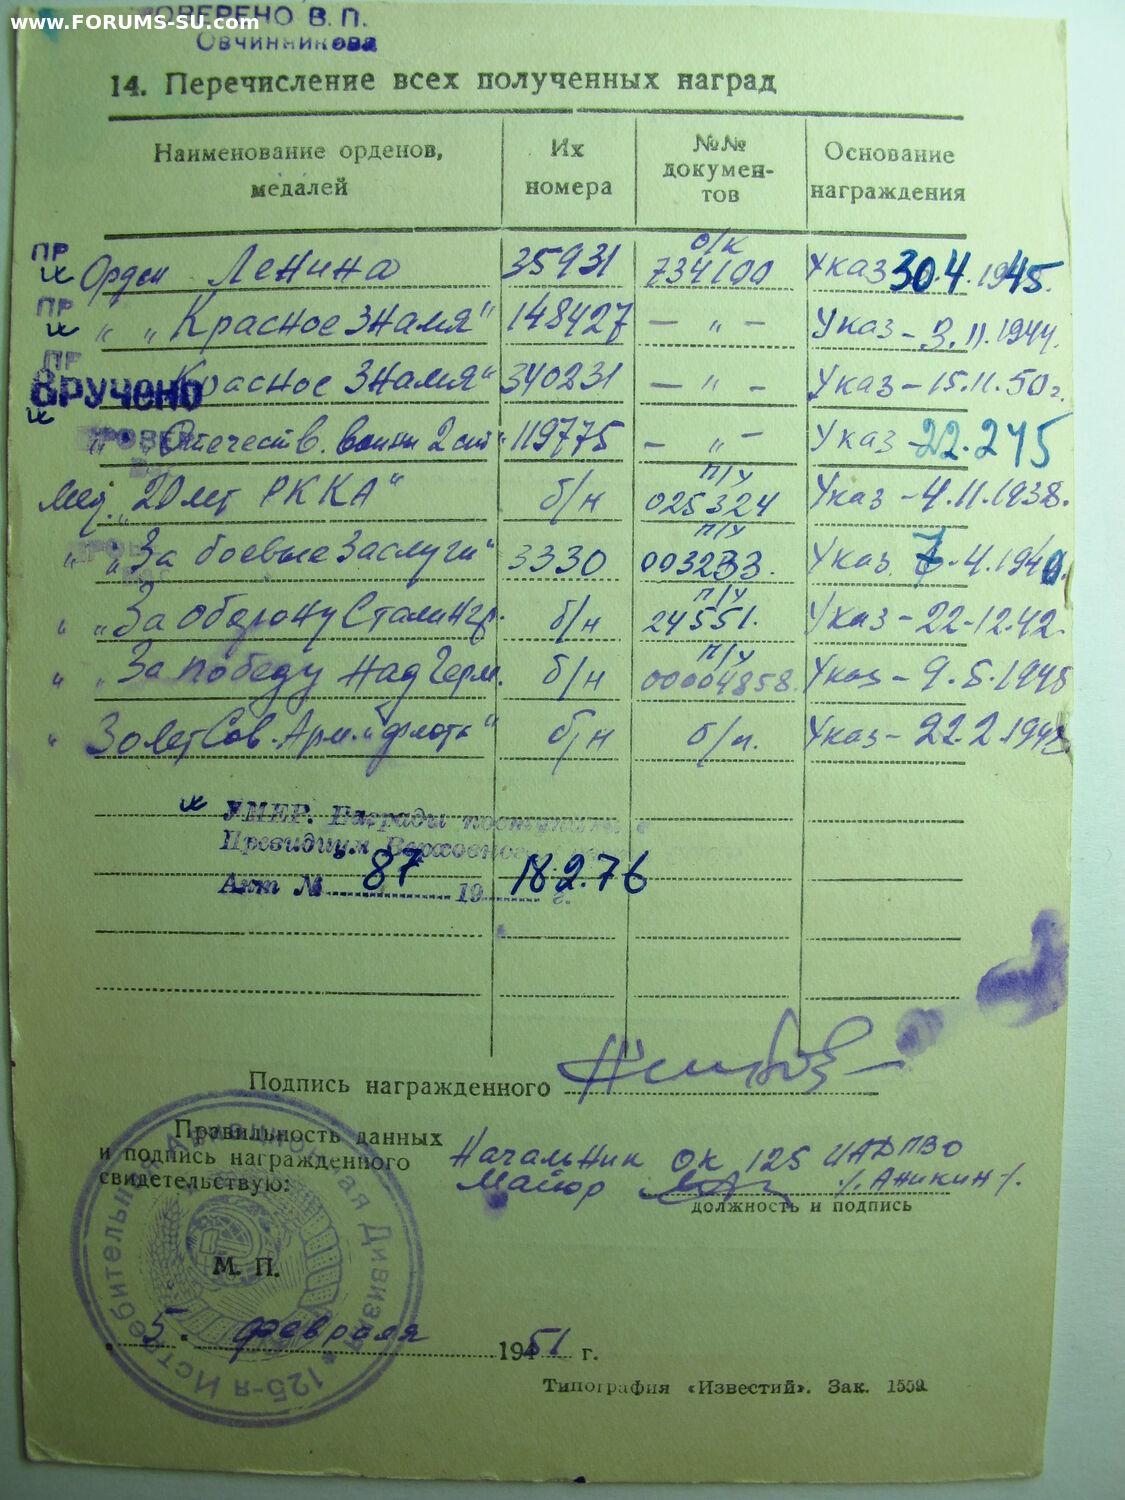 www.FORUMS-SU.com
ОВЕРЕНО В. П.
Овчинникова
14. Перечисление всех полученных наград
Наименование орденов, медалей
Их номера
№№ документов
Основание награждения
ПР Орден Ленина 35931 о/к 734100 Указ 30.4.1945.
ПР " „Красное Знамя" 148427 — " — Указ - 3.11.1944.
ПР ВРУЧЕНО Красное Знамя" 340231 — " — Указ - 15.11.50г.
" Отечеств. войны 2 ст" 119775 — " — Указ 22.2 45
Мед. „20 лет РККА" б/н п/у 025324 Указ - 4.11.1938.
" „За боевые Заслуги" 3330 п/у 003233. Указ 7.4.1940.
" „За Оборону Сталингр. б/н п/у 24551. Указ - 22.12.42.
" „За победу над Герм. б/н п/у 00004858. Указ - 9.5.1945
" 30 лет Сов. Арм и флота" б/н б/н. Указ - 22.2.1948
УМЕР. Награды поступили в
Президиум Верховного
Акт № 87 19 18.2.76 г.
Подпись награжденного
Правильность данных
и подпись награжденного
свидетельствую:
Начальник ОК 125 ИАДПВО
Майор /Аникин/.
должность и подпись
М. П.
125-я Истребительная Авиационная Дивизия
" 5 " февраля 1951 г.
Типография «Известий». Зак. 1559